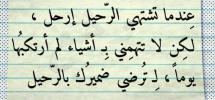 عِندما تشتهي الرّحيل إرحل ،
لكِن لا تتهِمْني بِـ أشياء لم أرتكبهُا
يوماً ، لِـ تُرضي ضميرُك بالرّحيل